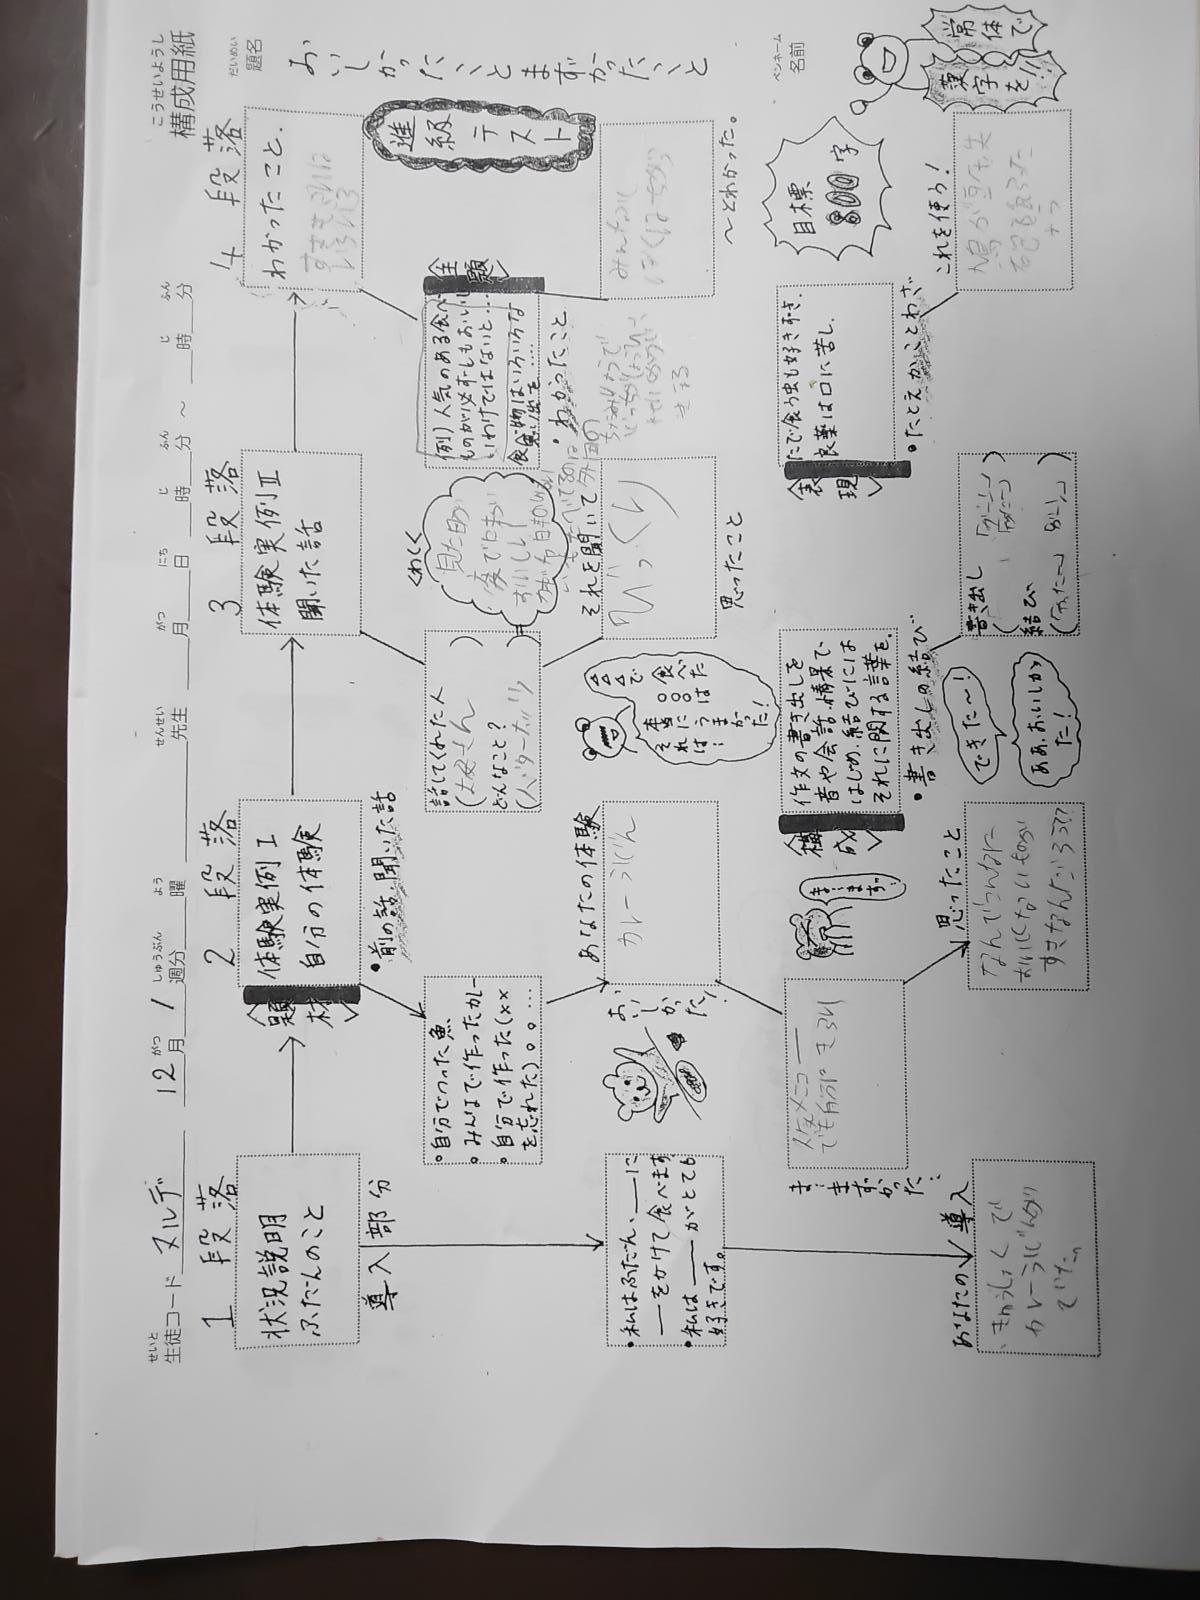 こうせいようし
構成用紙
だいめい
題名
おいしかったことまずかったこと
ペンネーム
名前
常体で
漢字を!!
せいと
生徒コード ヌルデ
がつ
12月
しゅうぶん
1週分
よう
曜
せんせい
先生
がつ
月
にち
日
じ
時
ふん
分
～
じ
時
ふん
分
1段落
状況説明
ふだんのこと
導入部分
・私はふだん、__に
__をかけて食べます
・私は__がとても
好きです。
あなたの導入
きゅうしょくで
でた。
2段落
〈題材〉
体験実例Ⅰ
自分の体験
・前の話、聞いた話
・自分でつった魚
・みんなで作ったカレー
・自分で作った(××
を忘れた)。。…
あなたの体験
カレーうどん
おいしかった!
まーまずかった…
まーまずい…
思ったこと
なんでこんなに
おいしくないものが
すきなんだろう???
3段落
体験実例Ⅱ
聞いた話
話してくれた人
(お母さん)
どんなこと?
くわしく
それを聞いて
びっくり
思ったこと
△△で
○○○食べた
それは
本当にうまかった!
〈構成〉
作文の書き出しを
音や会話、情景で、
はじめ、結びには
それに関する言葉を。
・書き出しの結び
書き出し
結び
できた～!
ああ、おいしかった!
4段落
わかったこと.
進級テスト
〈主題〉
例)人気のある食べ
ものが必ずしもおいし
いわけではないと…
食べ物はいろいろな
思い出を……
・わかったこと
～とわかった。
目標
800字
〈表現〉
たで食う虫も好き好き.
良薬は口に苦し.
・たとえかことわざ
これを使う!
鳩が豆鉄
砲を食らった